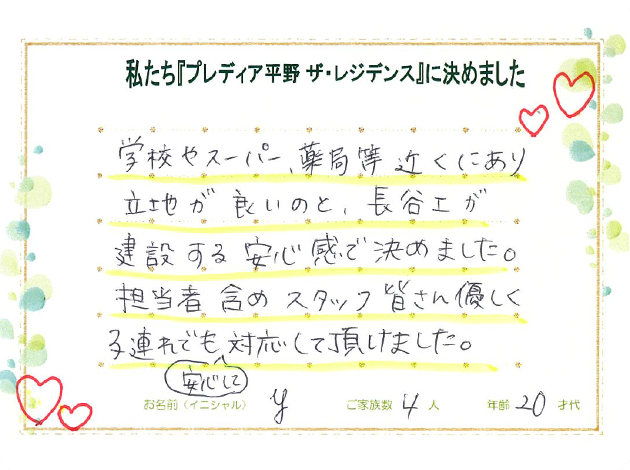 私たち『プレディア平野 ザ・レジデンス』に決めました
学校やスーパー、薬局等 近くにあり
立地が良いのと、長谷工が
建設する安心感で決めました。
担当者含めスタッフ皆さん優しく
子連れでも対応して頂けました。
安心して
お名前（イニシャル） y ご家族数 4 人 年齢 20 才代